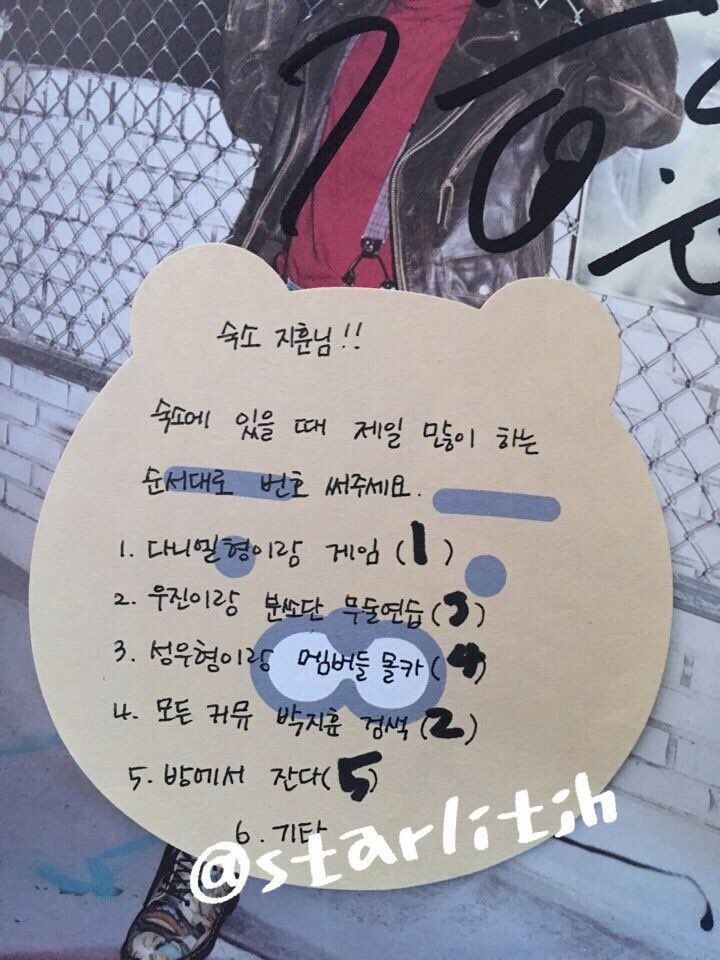 숙소 지훈님!!
숙소에 있을 때 제일 많이 하는
순서대로 번호 써주세요.
1. 다니엘형이랑 게임 (1)
2. 우진이랑 분쏘단 무술연습 (3)
3. 성우형이랑 멤버들 몰카 (4)
4. 모든 커뮤 박지훈 검색 (2)
5. 방에서 잔다 (5)
6. 기타
@starlitjh